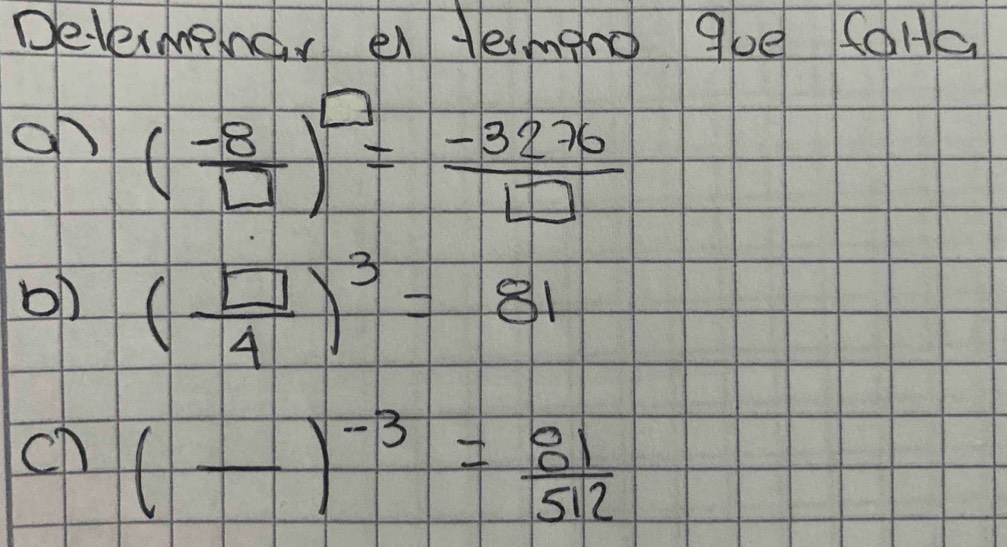 Determenar el termeno que falta
a) (-8/□)^□ = -3276/□
b) (□/4)^3 = 81
c) (—)^-3 = 81/512